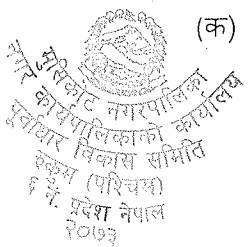 (क)
मुसिकोट नगरपालिका
नगर कार्यपालिकाको कार्यालय
पूर्वाधार विकास समिति
रुकुम (पश्चिम)
६ नं. प्रदेश नेपाल
२०७३